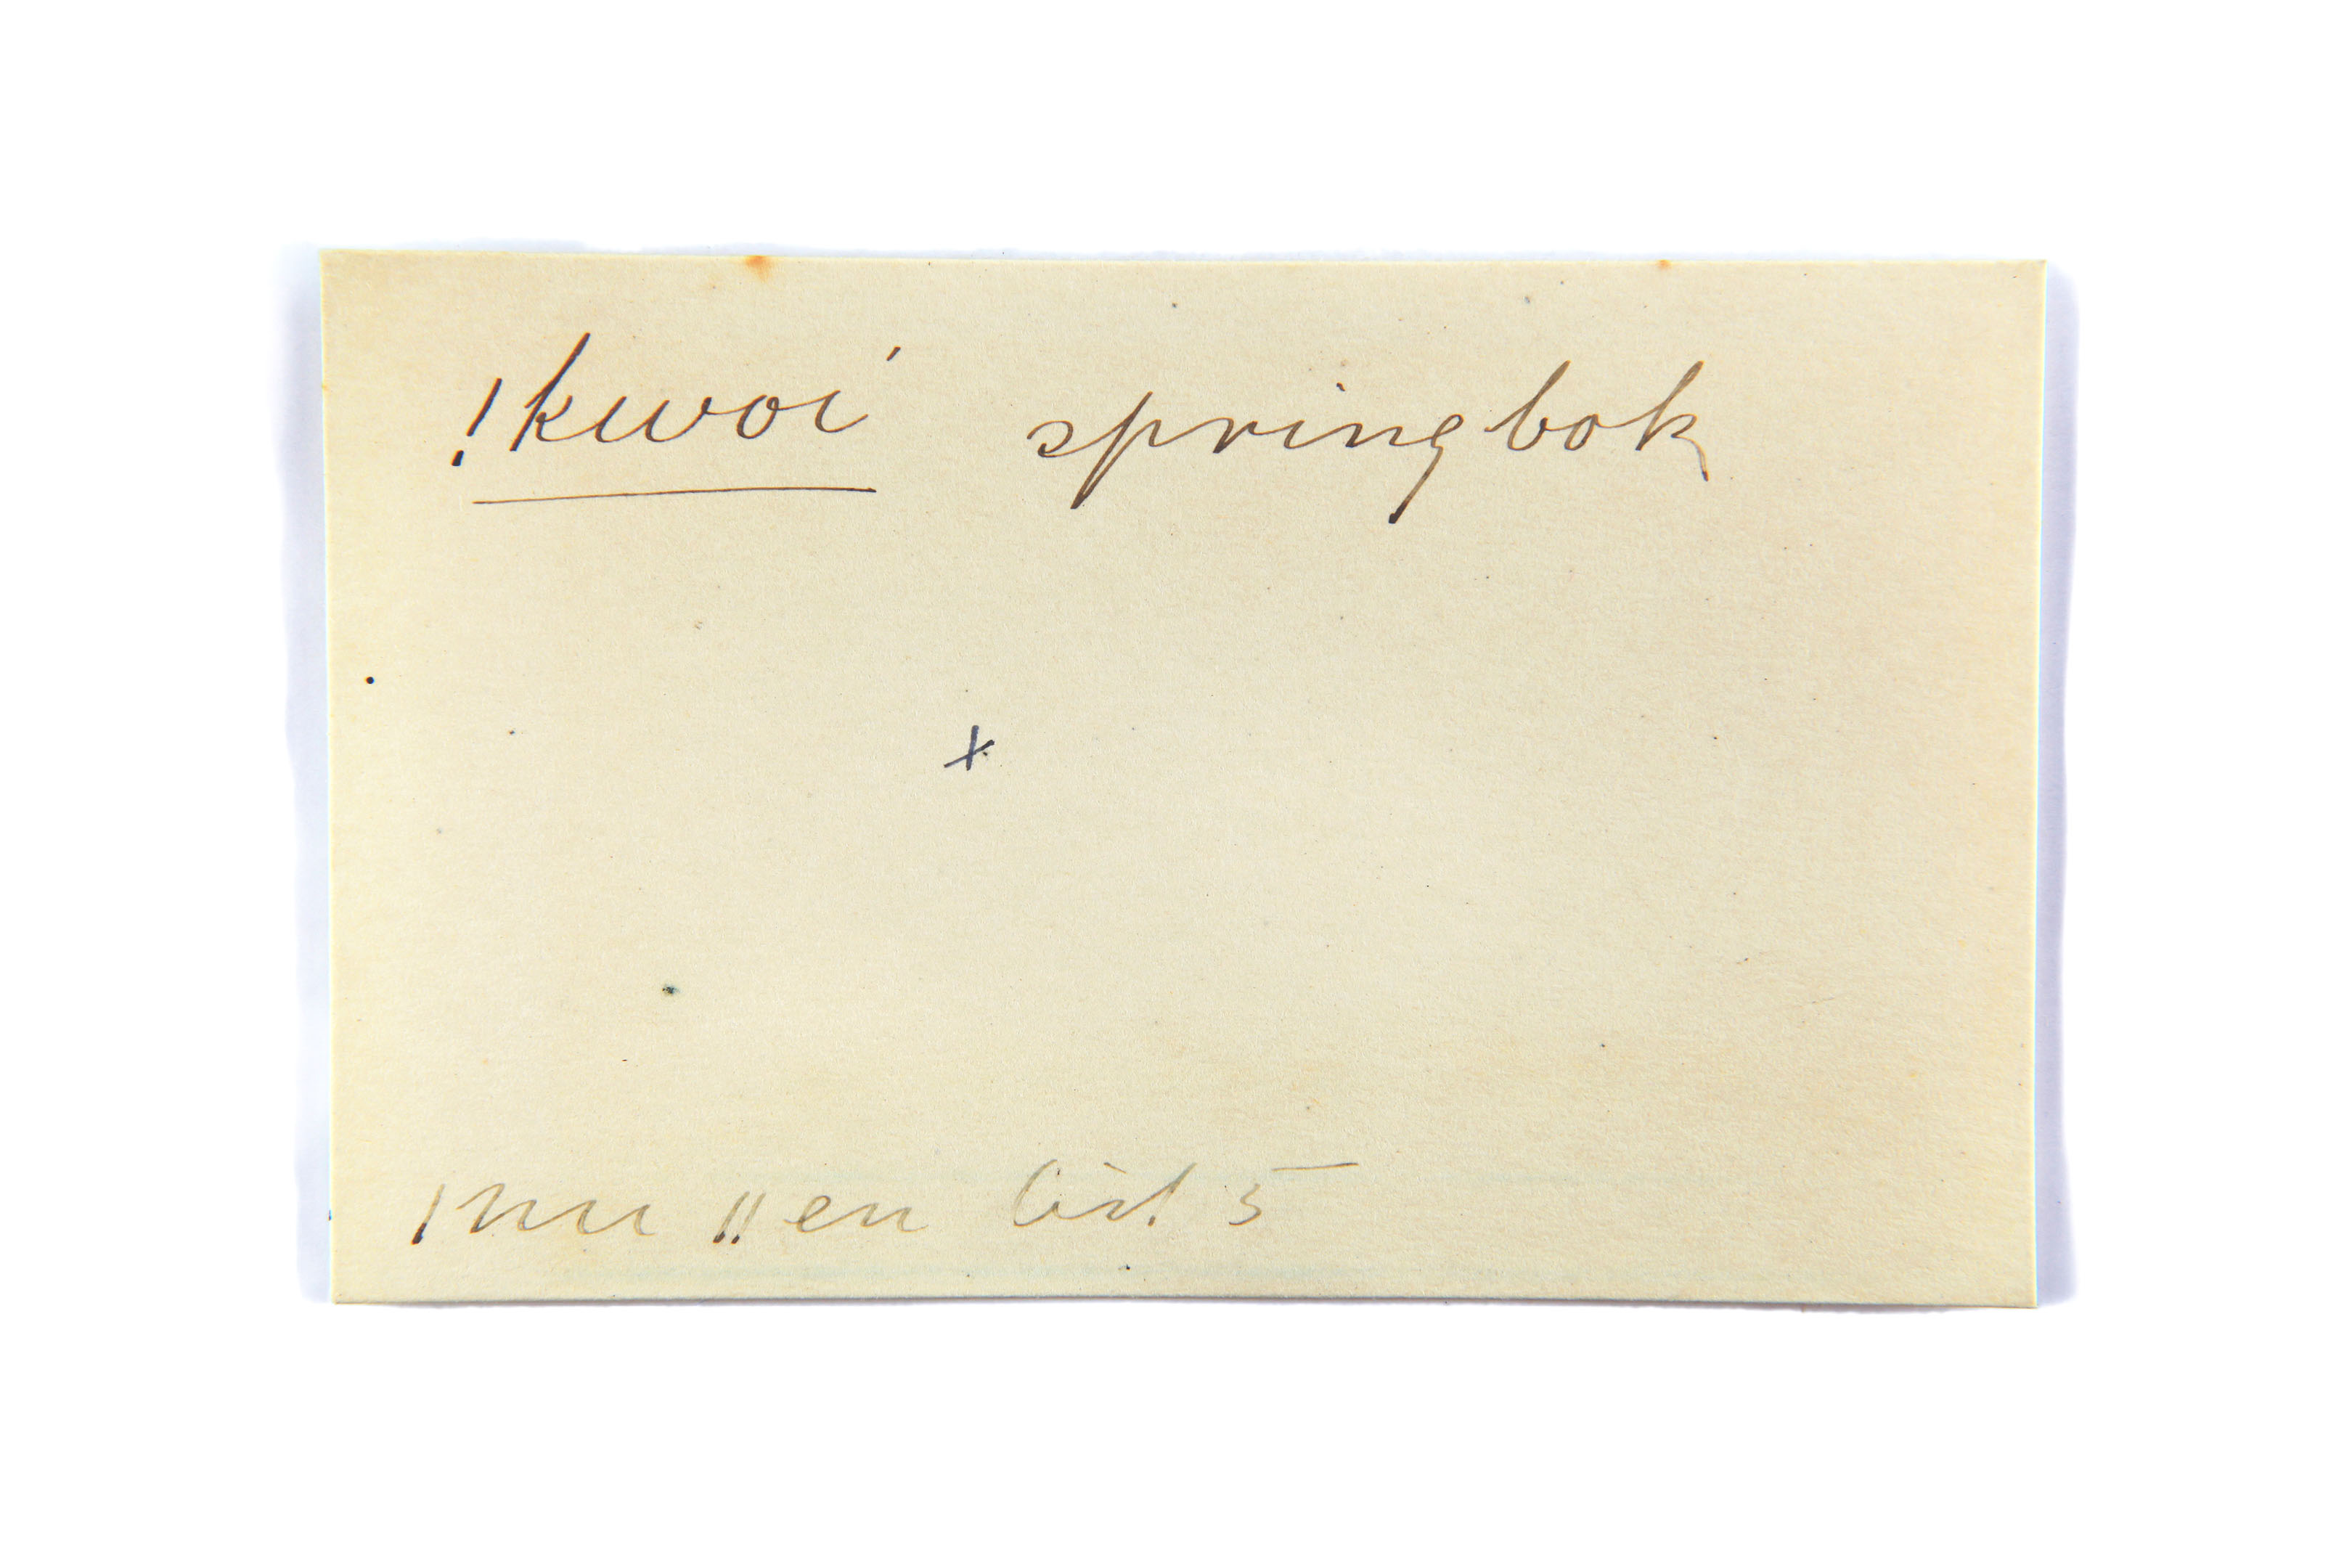 !kwoi springbok
x
|nu ||en list 5